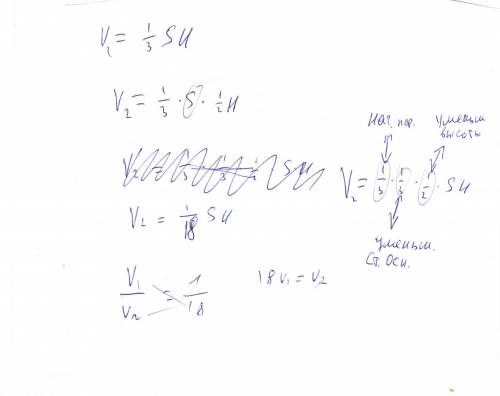 V₁ = 1/3 SH
V₂ = 1/3 · S · 1/2 H
V₂ = 1/18 SH
V₁/V₂ = 1/18
18V₁ = V₂
уменьш
высоты
V₂ = 1/3 · 1/3 · 1/2 · SH
уменьш.
Ст. Осн.